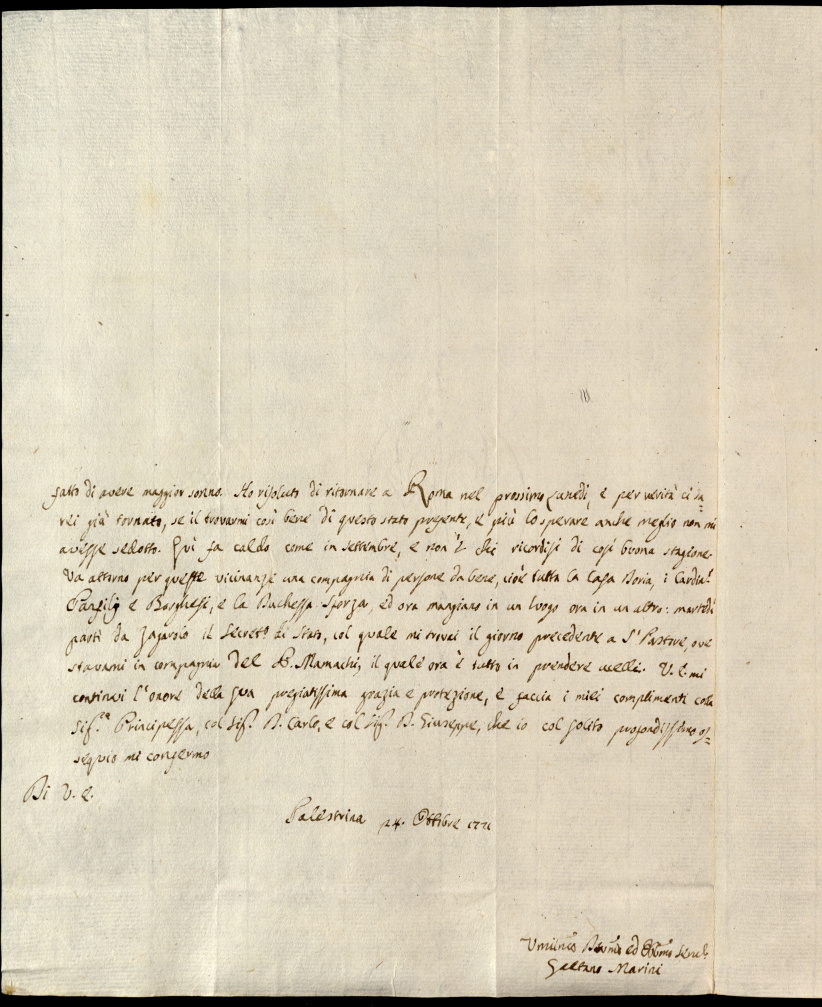 fatto di avere maggior sonno. Ho risoluto di ritornare a Roma nel prossimo Lunedì, e per verità ci sa=
rei già tornato, se il trovarmi così bene di questo stato presente, e più lo sperare anche meglio non mi
avesse sedotto. Qui fa caldo come in settembre, e non v'è chi ricordisi di così buona stagione.
Va attorno per queste vicinanze una compagnia di persone da bene, cioè tutta la Casa Doria, i Cardin.l
Panfilj e Borghesi, e la Duchessa Sforza, ed ora mangiano in un luogo ora in un altro: martedì
partì da Zagarolo il Secret.o di Stato, col quale mi trovai il giorno precedente a S. Pastore, ove
stavami in compagnia del P. Mamachi, il quale ora è tutto in prendere uccelli. V. E. mi
continui l'onore della sua pregiatissima grazia e protezione, e faccia i miei complimenti colla
Sig.ra Principessa, col Sig. D. Carlo, e col Sig. D. Giuseppe, che io col solito profondissimo os=
sequio mi confermo
Di V. E.
Palestrina 24. Ottobre 1771
Umilmo Devmo ed Obbmo Serv.e
Gaetano Marini